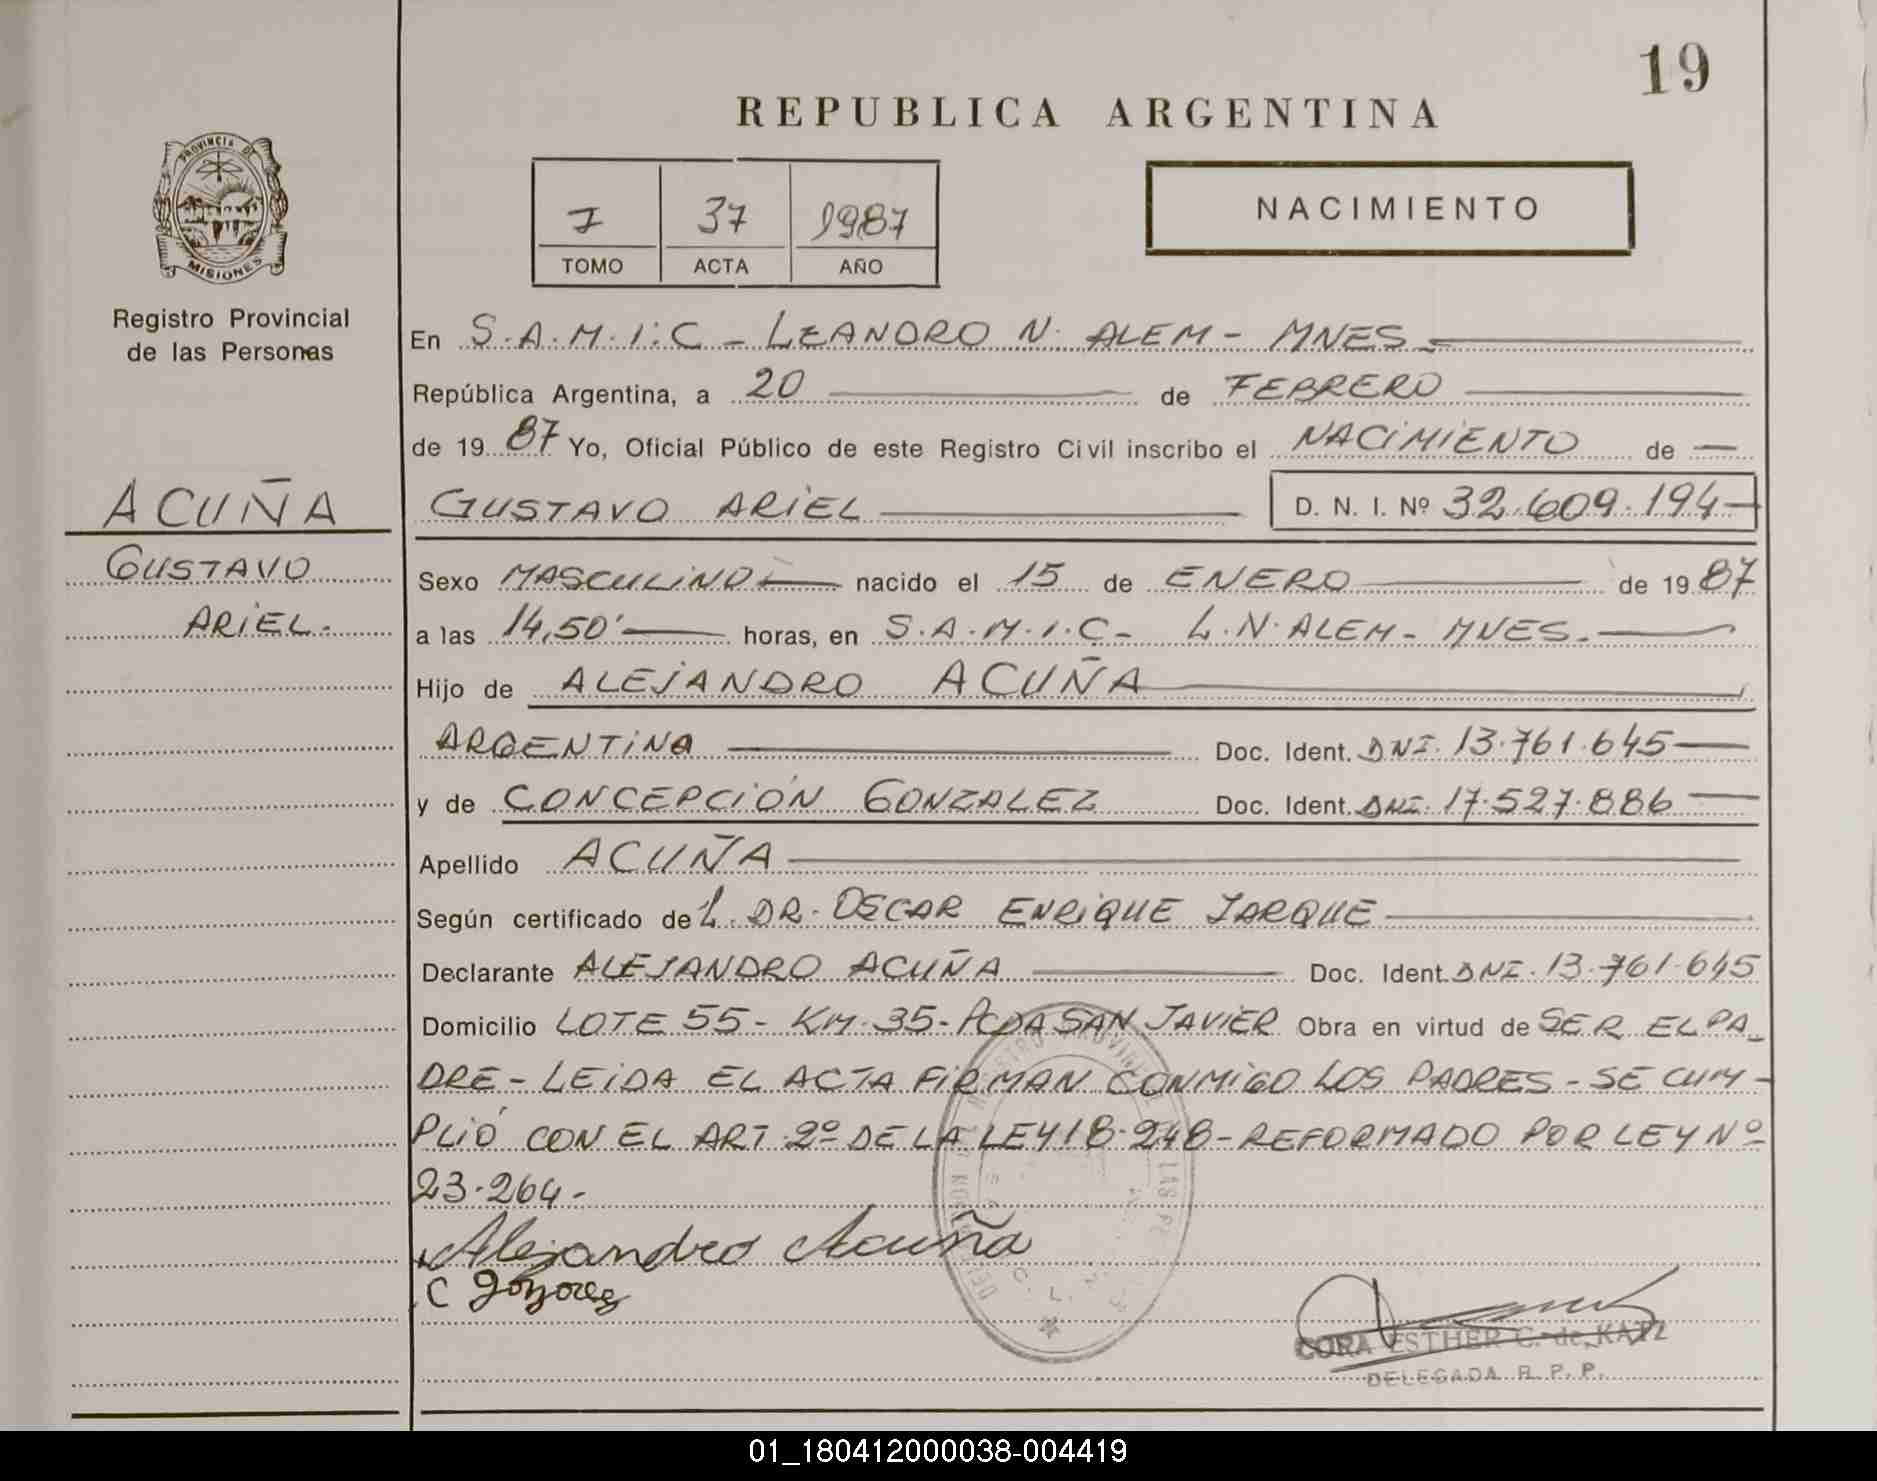 19
REPUBLICA ARGENTINA
PROVINCIA DE
MISIONES
Registro Provincial
de las Personas
7 37 1987
TOMO ACTA AÑO
NACIMIENTO
En S.A.M.I.C - LEANDRO N. ALEM - MNES
República Argentina, a 20 de FEBRERO
de 19 87 Yo, Oficial Público de este Registro Civil inscribo el NACIMIENTO de
ACUÑA
GUSTAVO
ARIEL.
GUSTAVO ARIEL D. N. I. Nº 32.609.194
Sexo MASCULINO nacido el 15 de ENERO de 19 87
a las 14,50' horas, en S.A.M.I.C - L.N. ALEM - MNES.
Hijo de ALEJANDRO ACUÑA
ARGENTINA Doc. Ident. DNI. 13.761.645
y de CONCEPCIÓN GONZALEZ Doc. Ident. DNI. 17.527.886
Apellido ACUÑA
Según certificado de L. DR. OSCAR ENRIQUE JARQUE
Declarante ALEJANDRO ACUÑA Doc. Ident. DNI. 13.761.645
Domicilio LOTE 55 - KM. 35 - PCDA SAN JAVIER Obra en virtud de SER EL PA_
DRE - LEIDA EL ACTA FIRMAN CONMIGO LOS PADRES - SE CUM-
PLIÓ CON EL ART. 2º DE LA LEY 18.248 - REFORMADO POR LEY Nº
23.264.-
Alejandro Acuña
C
CORA ESTHER C. de KATZ
DELEGADA R. P. P.
01_180412000038-004419